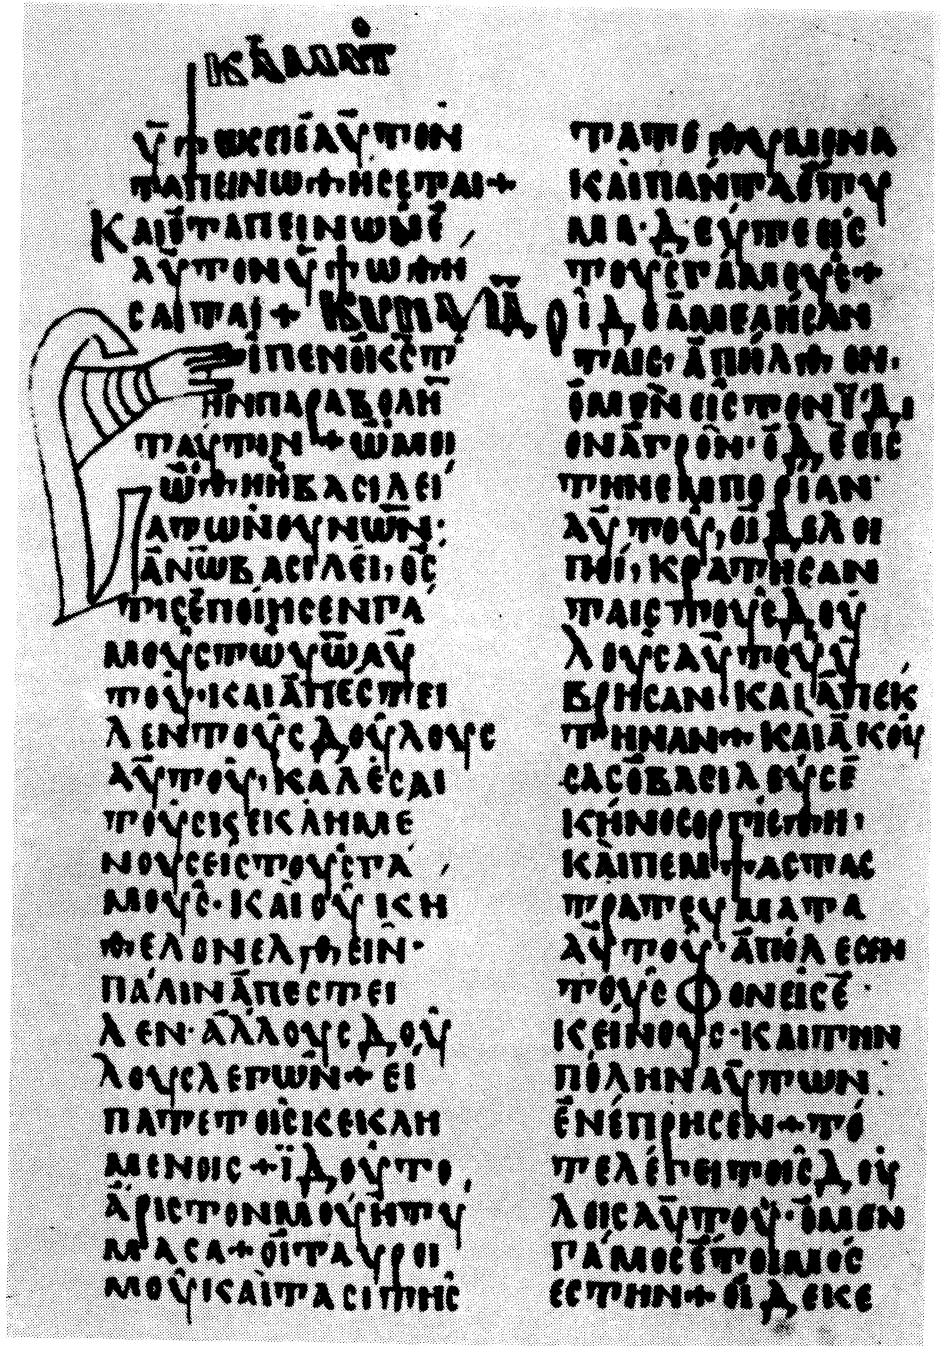 ΥΨΩϹΕΙΕΑΥΤΟΝ
ΤΑΠΕΙΝΩΘΗϹΕΤΑΙ+
ΚΑΙΟΤΑΠΕΙΝΩΝΕ
ΑΥΤΟΝΥΨΩΘΗ
ϹΑΙΤΑΙ+
ΕΙΠΕΝΟΚϹΤ
ΗΝΠΑΡΑΒΟΛΗ
ΤΑΥΤΗΝ+ΩΜΟΙ
ΩΘΗΗΒΑϹΙΛΕΙ
ΑΤΩΝΟΥΝΩΝ·
ΑΝΩΒΑϹΙΛΕΙ,ΟϹ
ΤΙϹΕΠΟΙΗϹΕΝΓΑ
ΜΟΥϹΤΩΥΩΑΥ
ΤΟΥ·ΚΑΙΑΠΕϹΤΕΙ
ΛΕΝΤΟΥϹΔΟΥΛΟΥϹ
ΑΥΤΟΥ,ΚΑΛΕϹΑΙ
ΤΟΥϹΚΕΚΛΗΜΕ
ΝΟΥϹΕΙϹΤΟΥϹΓΑ
ΜΟΥϹ·ΚΑΙΟΥΚΗ
ΘΕΛΟΝΕΛΘΕΙΝ·
ΠΑΛΙΝΑΠΕϹΤΕΙ
ΛΕΝ·ΑΛΛΟΥϹΔΟΥ
ΛΟΥϹΛΕΓΩΝ+ΕΙ
ΠΑΤΕΤΟΙϹΚΕΚΛΗ
ΜΕΝΟΙϹ+ΪΔΟΥΤΟ
ΑΡΙϹΤΟΝΜΟΥΗΤΥ
ΜΑϹΑ+ΟΙΤΑΥΡΟΙ
ΜΟΥΚΑΙΤΑϹΙΤΗϹ
ΤΑΤΕΘΥΜΕΝΑ
ΚΑΙΠΑΝΤΑΕΤΥ
ΜΑ·ΔΕΥΤΕΕΙϹ
ΤΟΥϹΓΑΜΟΥϹ+
ΟΙΔΕΑΜΕΛΗϹΑΝ
ΤΑΙϹ,ΑΠΗΛΘΟΝ·
ΟΜΕΝΕΙϹΤΟΝΪΔΙ
ΟΝΑΓΡΟΝ·ΟΔΕΕΙϹ
ΤΗΝΕΜΠΟΡΙΑΝ
ΑΥΤΟΥ,ΟΙΔΕΛΟΙ
ΠΟΙ,ΚΡΑΤΗϹΑΝ
ΤΑΙϹΤΟΥϹΔΟΥ
ΛΟΥϹΑΥΤΟΥΥ
ΒΡΗϹΑΝ·ΚΑΙΑΠΕΚ
ΤΗΝΑΝ+ΚΑΙΑΚΟΥ
ϹΑϹΟΒΑϹΙΛΕΥϹΕ
ΚΗΝΟϹΟΡΓΙϹΘΗ,
ΚΑΙΠΕΜΨΑϹΤΑϹ
ΤΡΑΤΕΥΜΑΤΑ
ΑΥΤΟΥ·ΑΠΟΛΕϹΕΝ
ΤΟΥϹΦΟΝΕΙϹΕ
ΚΕΙΝΟΥϹ·ΚΑΙΤΗΝ
ΠΟΛΗΝΑΥΤΩΝ
ΕΝΕΠΡΗϹΕΝ+ΤΟ
ΤΕΛΕΓΕΙΤΟΙϹΔΟΥ
ΛΟΙϹΑΥΤΟΥ·ΟΜΕΝ
ΓΑΜΟϹΕΤΟΙΜΟϹ
ΕϹΤΗΝ+ΟΙΔΕΚΕ